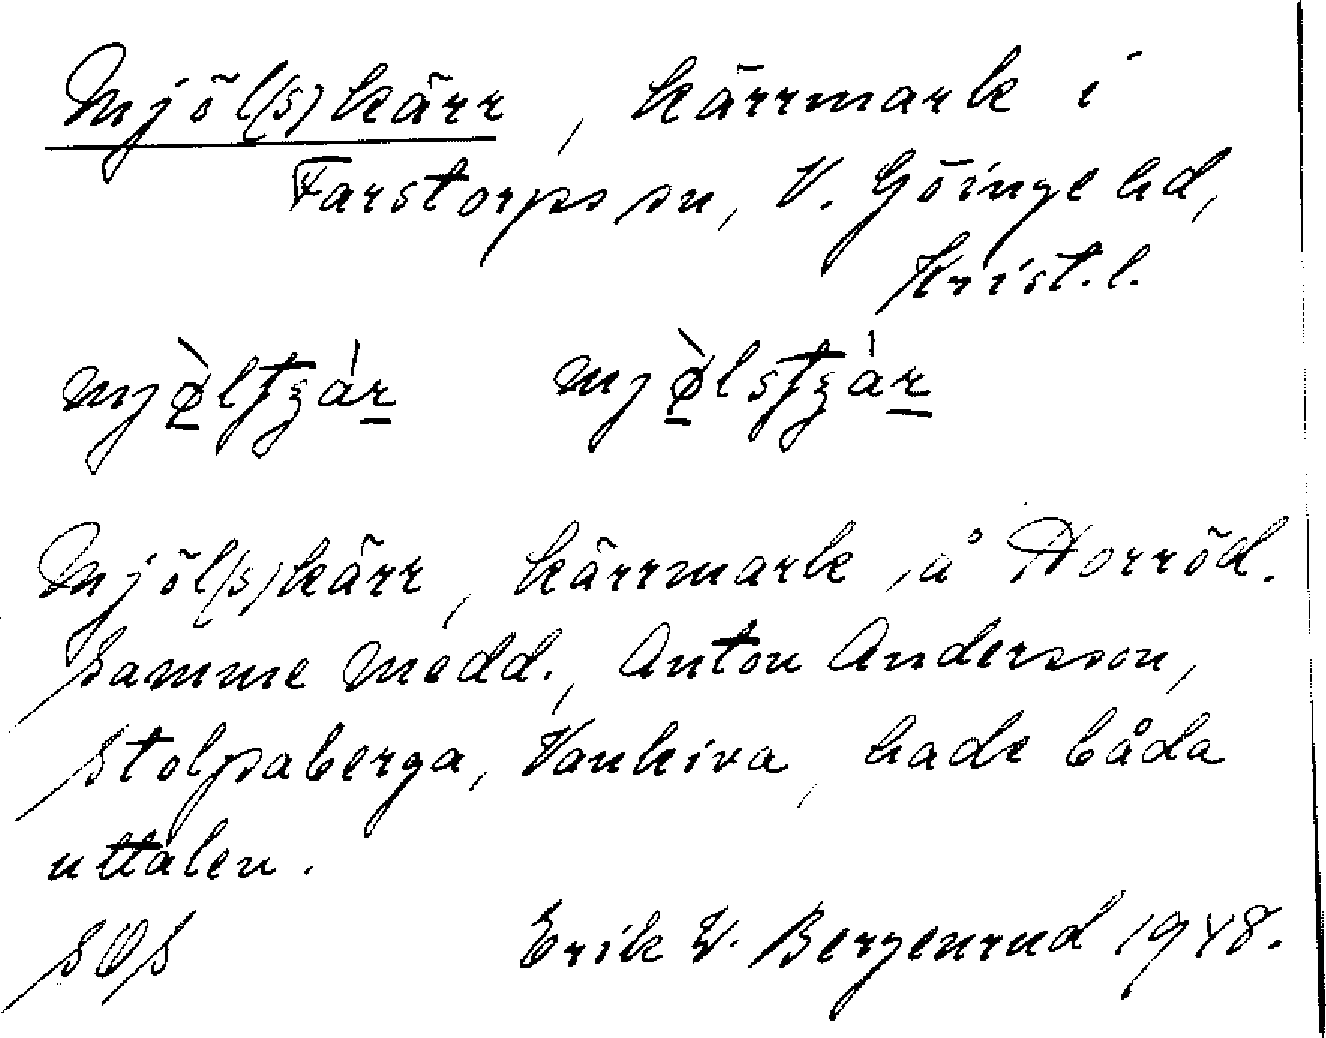 Mjöl(s)kärr, kärrmark i
Farstorps sn, V. Göinge hd,
Krist. l.
Mjöl(s)kärr, kärrmark å Horröd.
Samme medd., Anton Andersson,
Stolpaberga, Vankiva, hade båda
uttalen.
SOS Erik W. Bergenrud 1948.